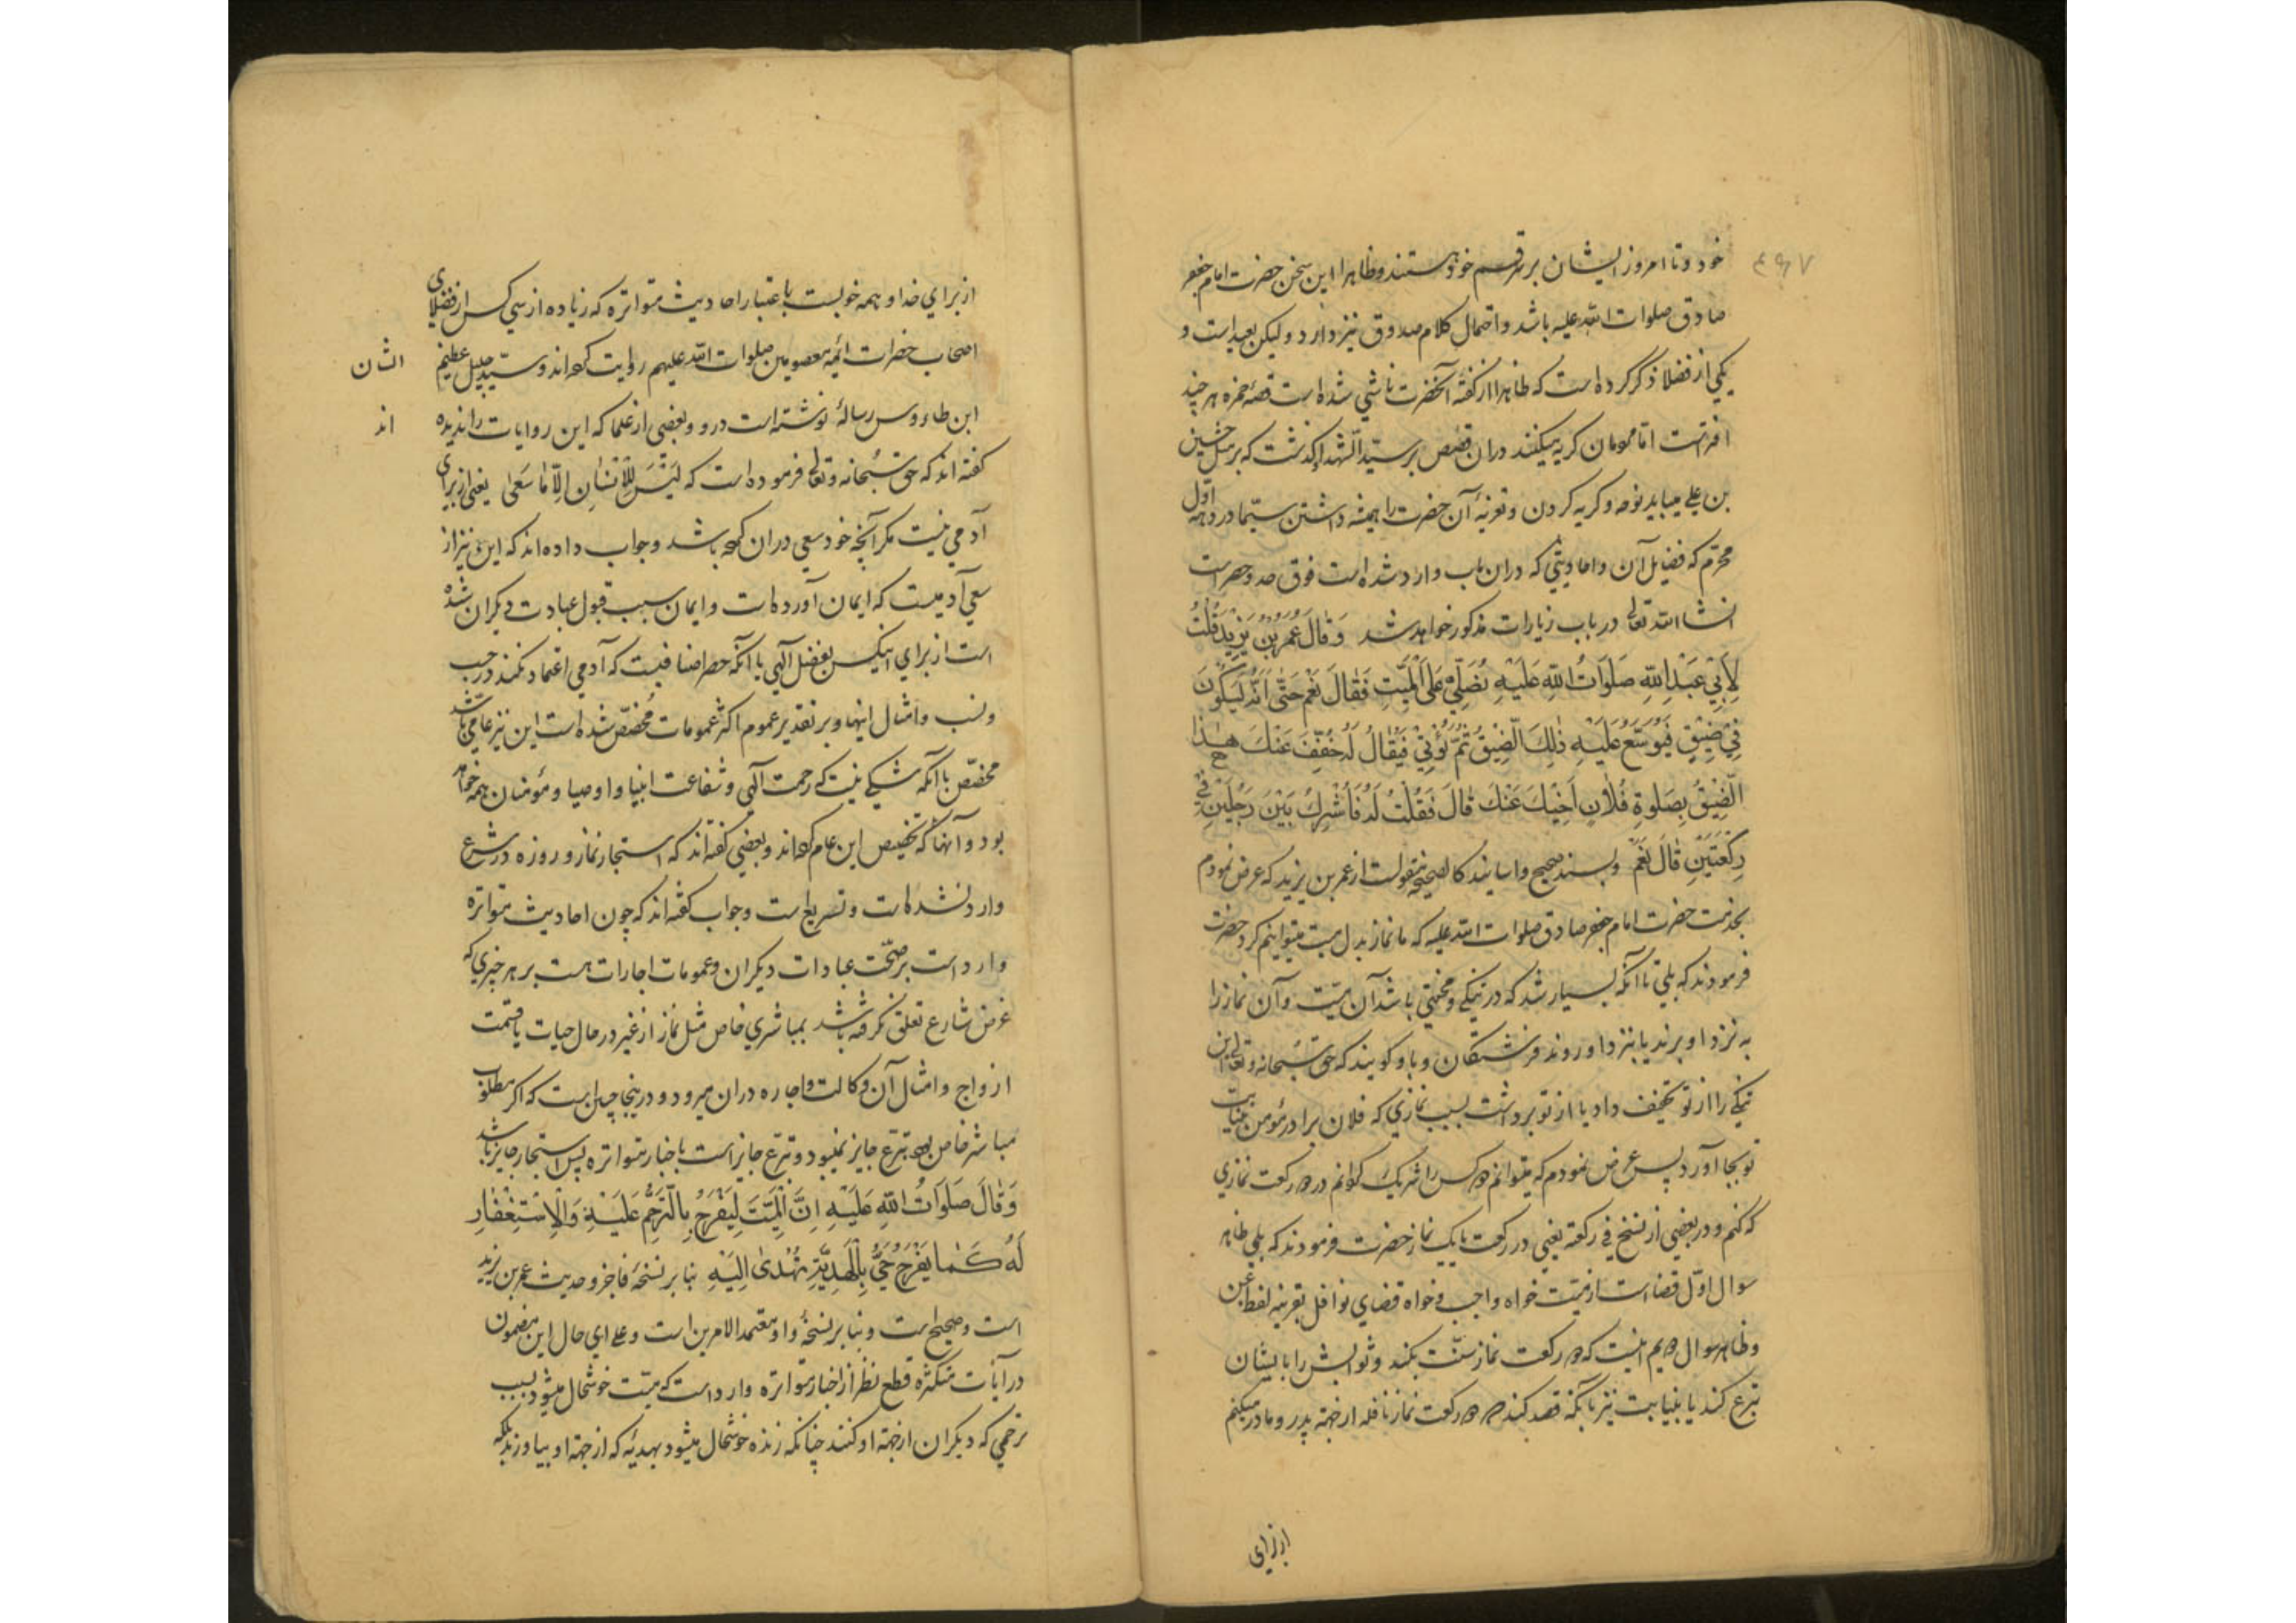 خود و تا امروز ایشان بر سر قسم خود هستند و ظاهرا این سخن حضرت امام جعفر
صادق صلوات الله علیه باشد و احتمال کلام صدوق نیز دارد و لیکن بعید است و
یکی از فضلا ذکر کرده است که ظاهرا از گفته آنحضرت ناشی شده است قصه حمزه هر چند
افتراست اما مومان کریه میکنند دران قصص بر سید الشهدا کذشت که بر مثل حسین
بن علی میباید نوحه و کریه کردن و تعزیهٔ آن حضرت را همیشه داشتن سیما در دههٔ اول
محرم که فضایل آن و احادیثی که دران باب وارد شده است فوق حد و حصر است
انشاالله تعالی در باب زیارات مذکور خواهد شد وَقَالَ عُمَرُ بْنُ یَزِیدَ قُلْتُ
لِأَبِی عَبْدِ اللّٰهِ صَلَوَاتُ اللّٰهِ عَلَیْهِ نُصَلِّی عَلَی الْمَیِّتِ فَقَالَ نَعَمْ حَتّٰی اَنَّهُ لَیَکُونُ
فِی ضِیقٍ فَیُوَسَّعُ عَلَیْهِ ذٰلِکَ الضِّیقُ ثُمَّ یُؤْتٰی فَیُقَالُ لَهُ خُفِّفَ عَنْکَ هٰذَا
الضِّیقُ بِصَلٰوةِ فُلَانٍ اَخِیکَ عَنْکَ قَالَ فَقُلْتُ لَهُ فَاُشْرِكُ بَیْنَ رَجُلَیْنِ فِی
رَکْعَتَیْنِ قَالَ نَعَمْ و بسند صحیح و اسانید کالصحیحه منقولست از عمر بن یزید که عرض نمودم
بخدمت حضرت امام جعفر صادق صلوات الله علیه که ما نماز بدل میت میتوانیم کرد حضرت
فرمودند که بلی تا آنکه بسیار شد که در تنکی و محنتی باشد آن میت و آن نماز را
به نزد او برند یا بنزد او روند فرشتکان و باو کویند که حق سبحانه و تعالی این
تنکی را از تو تخفیف داد یا از تو برداشت بسبب نمازی که فلان برادر مؤمن بنیابت
تو بجا آورد پس عرض نمودم که میتوانم دو کس را شریک کردانم در دو رکعت نمازی
که کنم و در بعضی از نسخ فی رکعته یعنی در رکعت یا یک نماز حضرت فرمودند که بلی ظاهر
سوال اول قضا است از میت خواه واجب و خواه قضای نوافل بقرینه لفظ عن
و ظاهر سوال دویم انیست که دو رکعت نماز سنت بکند و ثوابش را بایشان
تبرع کند یا بنیابت نیز بآنکه قصد کند که دو رکعت نماز نافله از جهة پدر و مادر میکنم
از برای
از برای خدا و همه خوبست باعتبار احادیث متواتره که زیاده از سی کس از فضلای
اصحاب حضرات ائمه معصومین صلوات الله علیهم روایت کرده اند و سید جلیل عظیم الشان
ابن طاءوس رساله نوشته است درو و بعضی از علما که این روایات را ندیده اند
کفته اند که حق سبحانه و تعالی فرموده است که لَیْسَ لِلْاِنْسَانِ اِلَّا مَا سَعٰی یعنی از برای
آدمی نیست مکر آنچه خود سعی دران کرده باشد و جواب داده اند که این نیز از
سعی آدمیست که ایمان آورده است و ایمان سبب قبول عبادت دیکران شده
است از برای اینکس بفضل الهی یا آنکه حصر اضافیست که آدمی اعتماد نکند در حسب
و نسب و امثال اینها و بر تقدیر عموم اکثر عمومات مخصّص شده است این نیز عامی باشد
مخصّص با آنکه شکی نیست که رحمت الهی و شفاعت انبیا و اوصیا و مؤمنان همه خواهد
بود و آنها که تخصیص این عام کرده اند و بعضی کفته اند که استیجار نماز و روزه در شرع
وارد نشده است و تسریع است و جواب کفته اند که چون احادیث متواتره
وارد است بر صحّت عبادات دیکران و عمومات اجارات هست بر هر چیزی که
غرض شارع تعلق نکرفته باشد بمباشری خاص مثل نماز از غیر در حال حیات یا قسمت
ازواج و امثال آن وکالت و اجاره دران میرود و درینجا چنین است که اکر مطلوب
مباشر خاص بود تبرّع جایز نمیبود و تبرّع جایز است باخبار متواتره پس استیجار جایز باشد
وَقَالَ صَلَوَاتُ اللّٰهِ عَلَیْهِ اِنَّ الْمَیِّتَ لَیَفْرَحُ بِالتَّرَحُّمِ عَلَیْهِ وَالْاِسْتِغْفَارِ
لَهُ کَمَا یَفْرَحُ حَیٌّ بِالْهَدِیَّةِ تُهْدٰی اِلَیْهِ بنا بر نسخهٔ فا جزو حدیث عمر بن یزید
است و صحیح است و بنا بر نسخهٔ واو معتمد الامرین است و علی ای حال این مضمون
در آیات متکثره قطع نظر از اخبار متواتره وارد است که میت خوشحال میشود بسبب
ترحمی که دیکران از جهة او کنند چنانکه زنده خوشحال میشود بهدیهٔ که از جهة او بیاورند بلکه